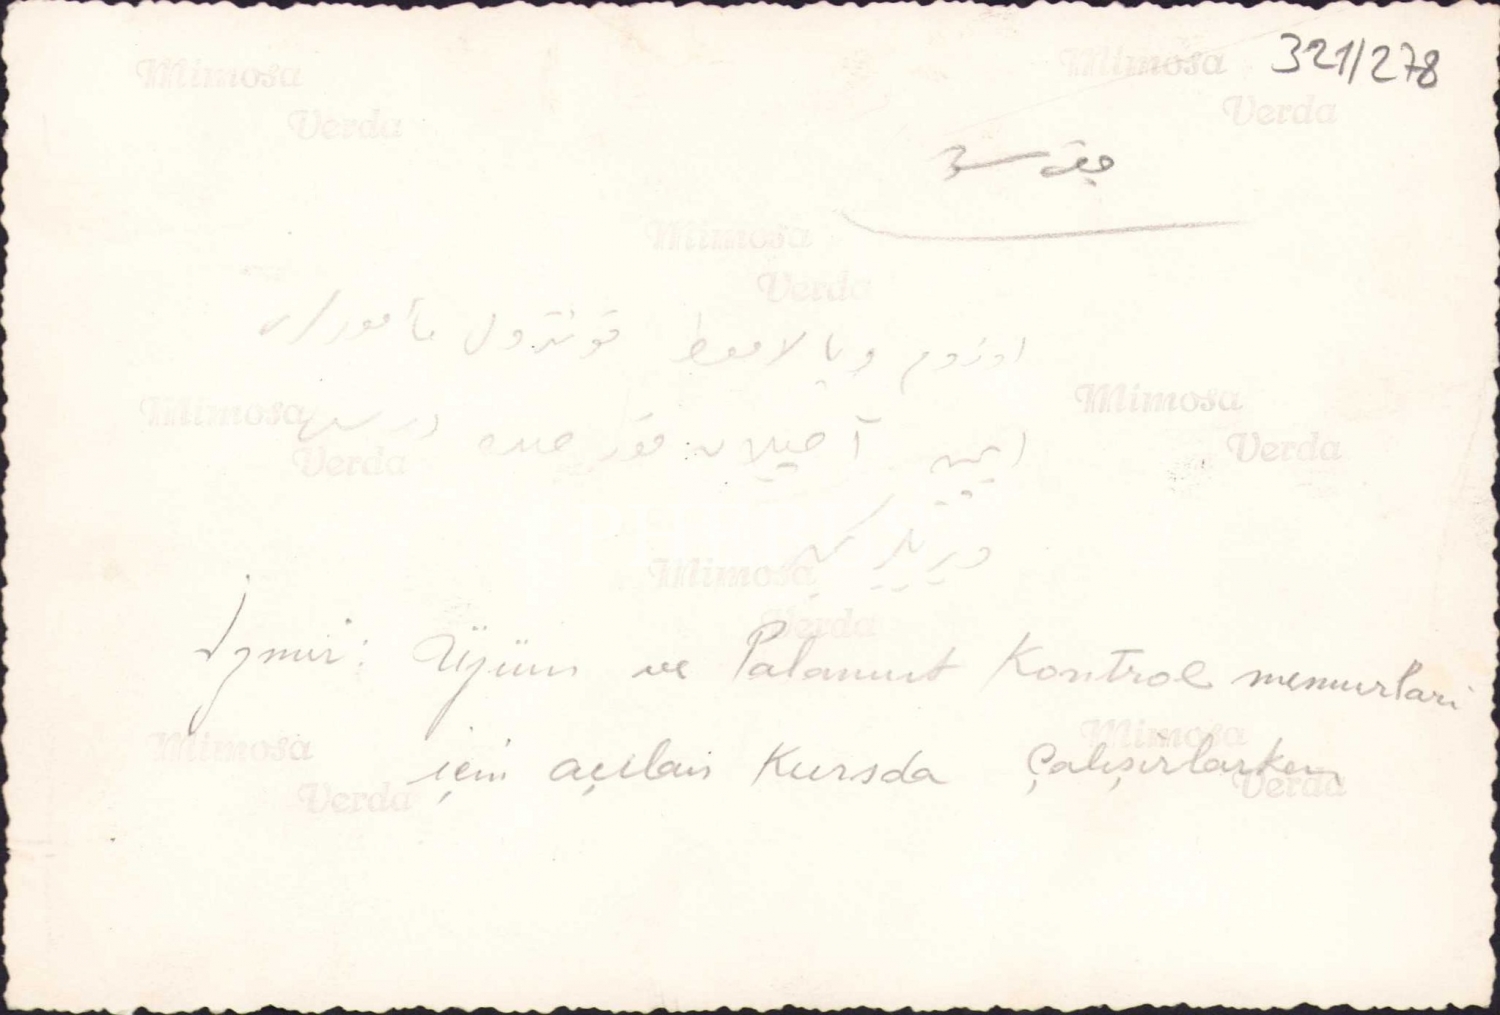 321/278
اوزوم وپالاموط قونترول مأمورلری
ایچین آچیلان قورصده درس
İzmir: Üzüm ve Palamut Kontrol memurları
için açılan Kursda Çalışırlarken
Mimosa
Verda
Mimosa
Verda
Mimosa
Verda
Mimosa
Verda
Mimosa
Verda
Mimosa
Verda
Mimosa
Verda
Mimosa
Verda